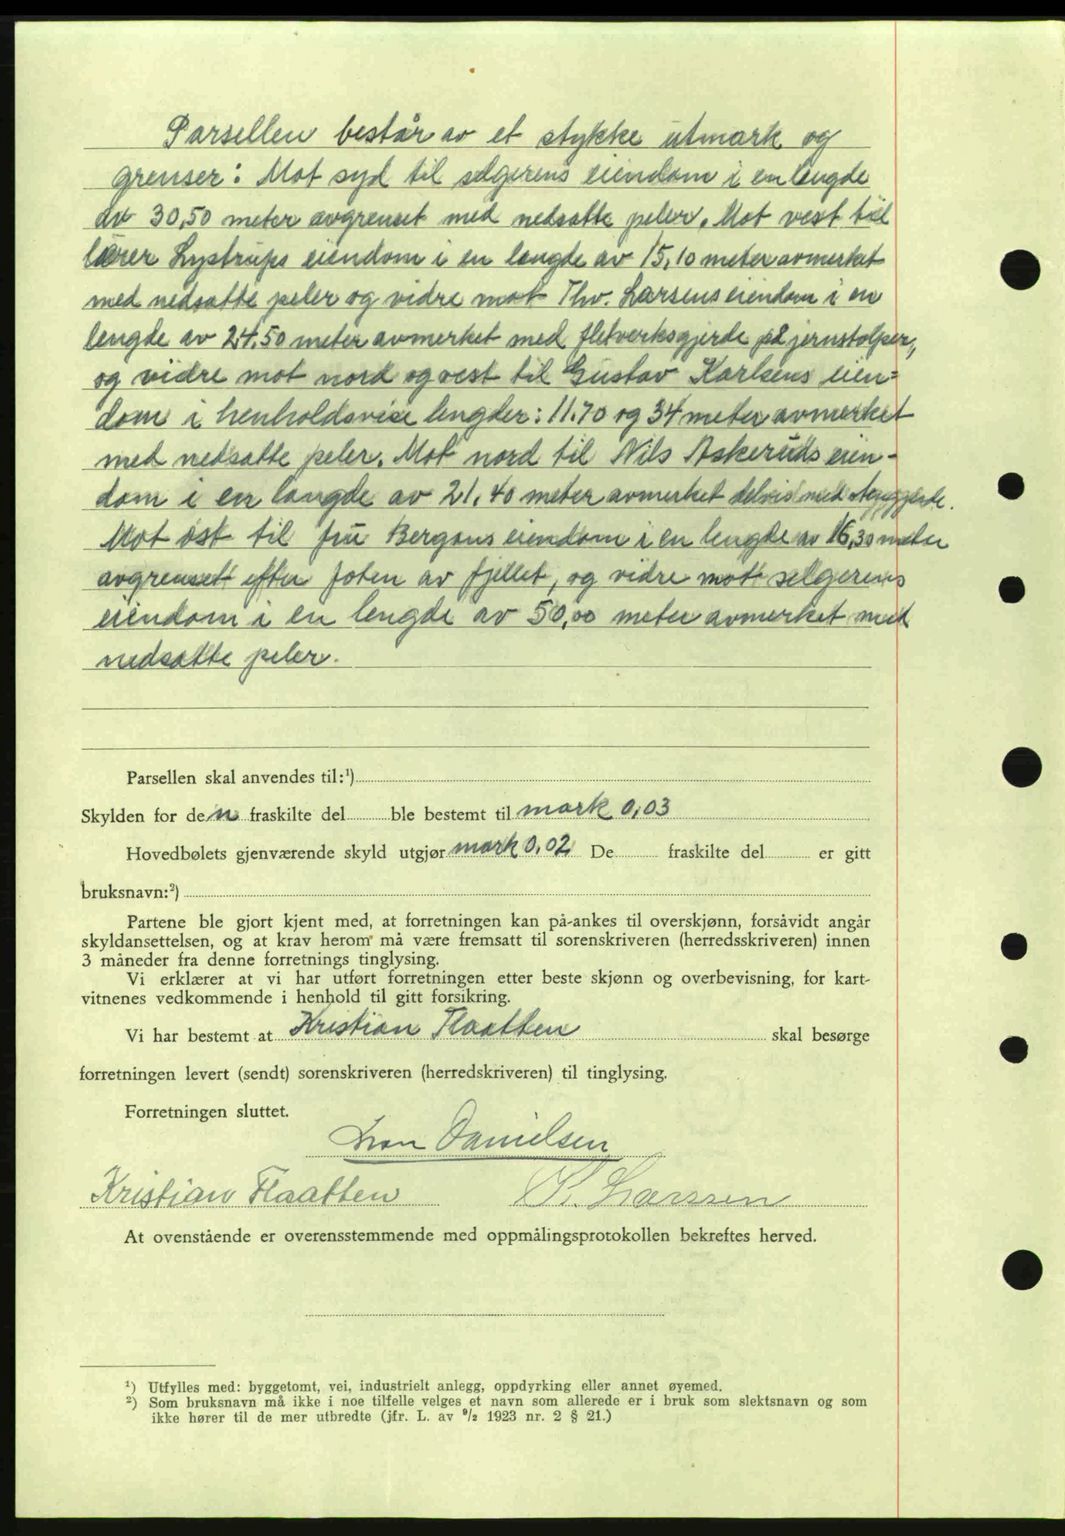 Parsellen består av et stykke utmark og
grenser: Mot syd til selgerens eiendom i en lengde
av 30,50 meter avgrenset med nedsatte peler. Mot vest til
lærer Lystrups eiendom i en lengde av 15,10 meter avmerket
med nedsatte peler og vidre mot Thv. Larsens eiendom i en
lengde av 24.50 meter avmerket med fletverksgjerde på jernstolper,
og vidre mot nord og vest til Gustav Karlsens eien=
dom i henholdsvise lengder: 11.70 og 34 meter avmerket
med nedsatte peler. Mot nord til Nils Askeruds eien-
dom i en længde av 21.40 meter avmerket delvis med
Mot øst til fru Bergans eiendom i en lengde av 16,30 meter
avgrenset efter foten av fjellet, og vidre mot selgerens
eiendom i en lengde av 50,00 meter avmerket med
nedsatte peler.
Parsellen skal anvendes til:¹)
Skylden for den fraskilte del ble bestemt til mark 0,03
Hovedbølets gjenværende skyld utgjør mark 0,02 De fraskilte del er gitt
bruksnavn:²)
Partene ble gjort kjent med, at forretningen kan på-ankes til overskjønn, forsåvidt angår
skyldansettelsen, og at krav herom må være fremsatt til sorenskriveren (herredsskriveren) innen
3 måneder fra denne forretnings tinglysing.
Vi erklærer at vi har utført forretningen etter beste skjønn og overbevisning, for kart-
vitnenes vedkommende i henhold til gitt forsikring.
Vi har bestemt at Kristian Flaatten skal besørge
forretningen levert (sendt) sorenskriveren (herredskriveren) til tinglysing.
Forretningen sluttet.
Danielsen
Kristian Flaatten Larssen
At ovenstående er overensstemmende med oppmålingsprotokollen bekreftes herved.
¹) Utfylles med: byggetomt, vei, industrielt anlegg, oppdyrking eller annet øyemed.
²) Som bruksnavn må ikke i noe tilfelle velges et navn som allerede er i bruk som slektsnavn og som
ikke hører til de mer utbredte (jfr. L. av ⁹/₂ 1923 nr. 2 § 21.)